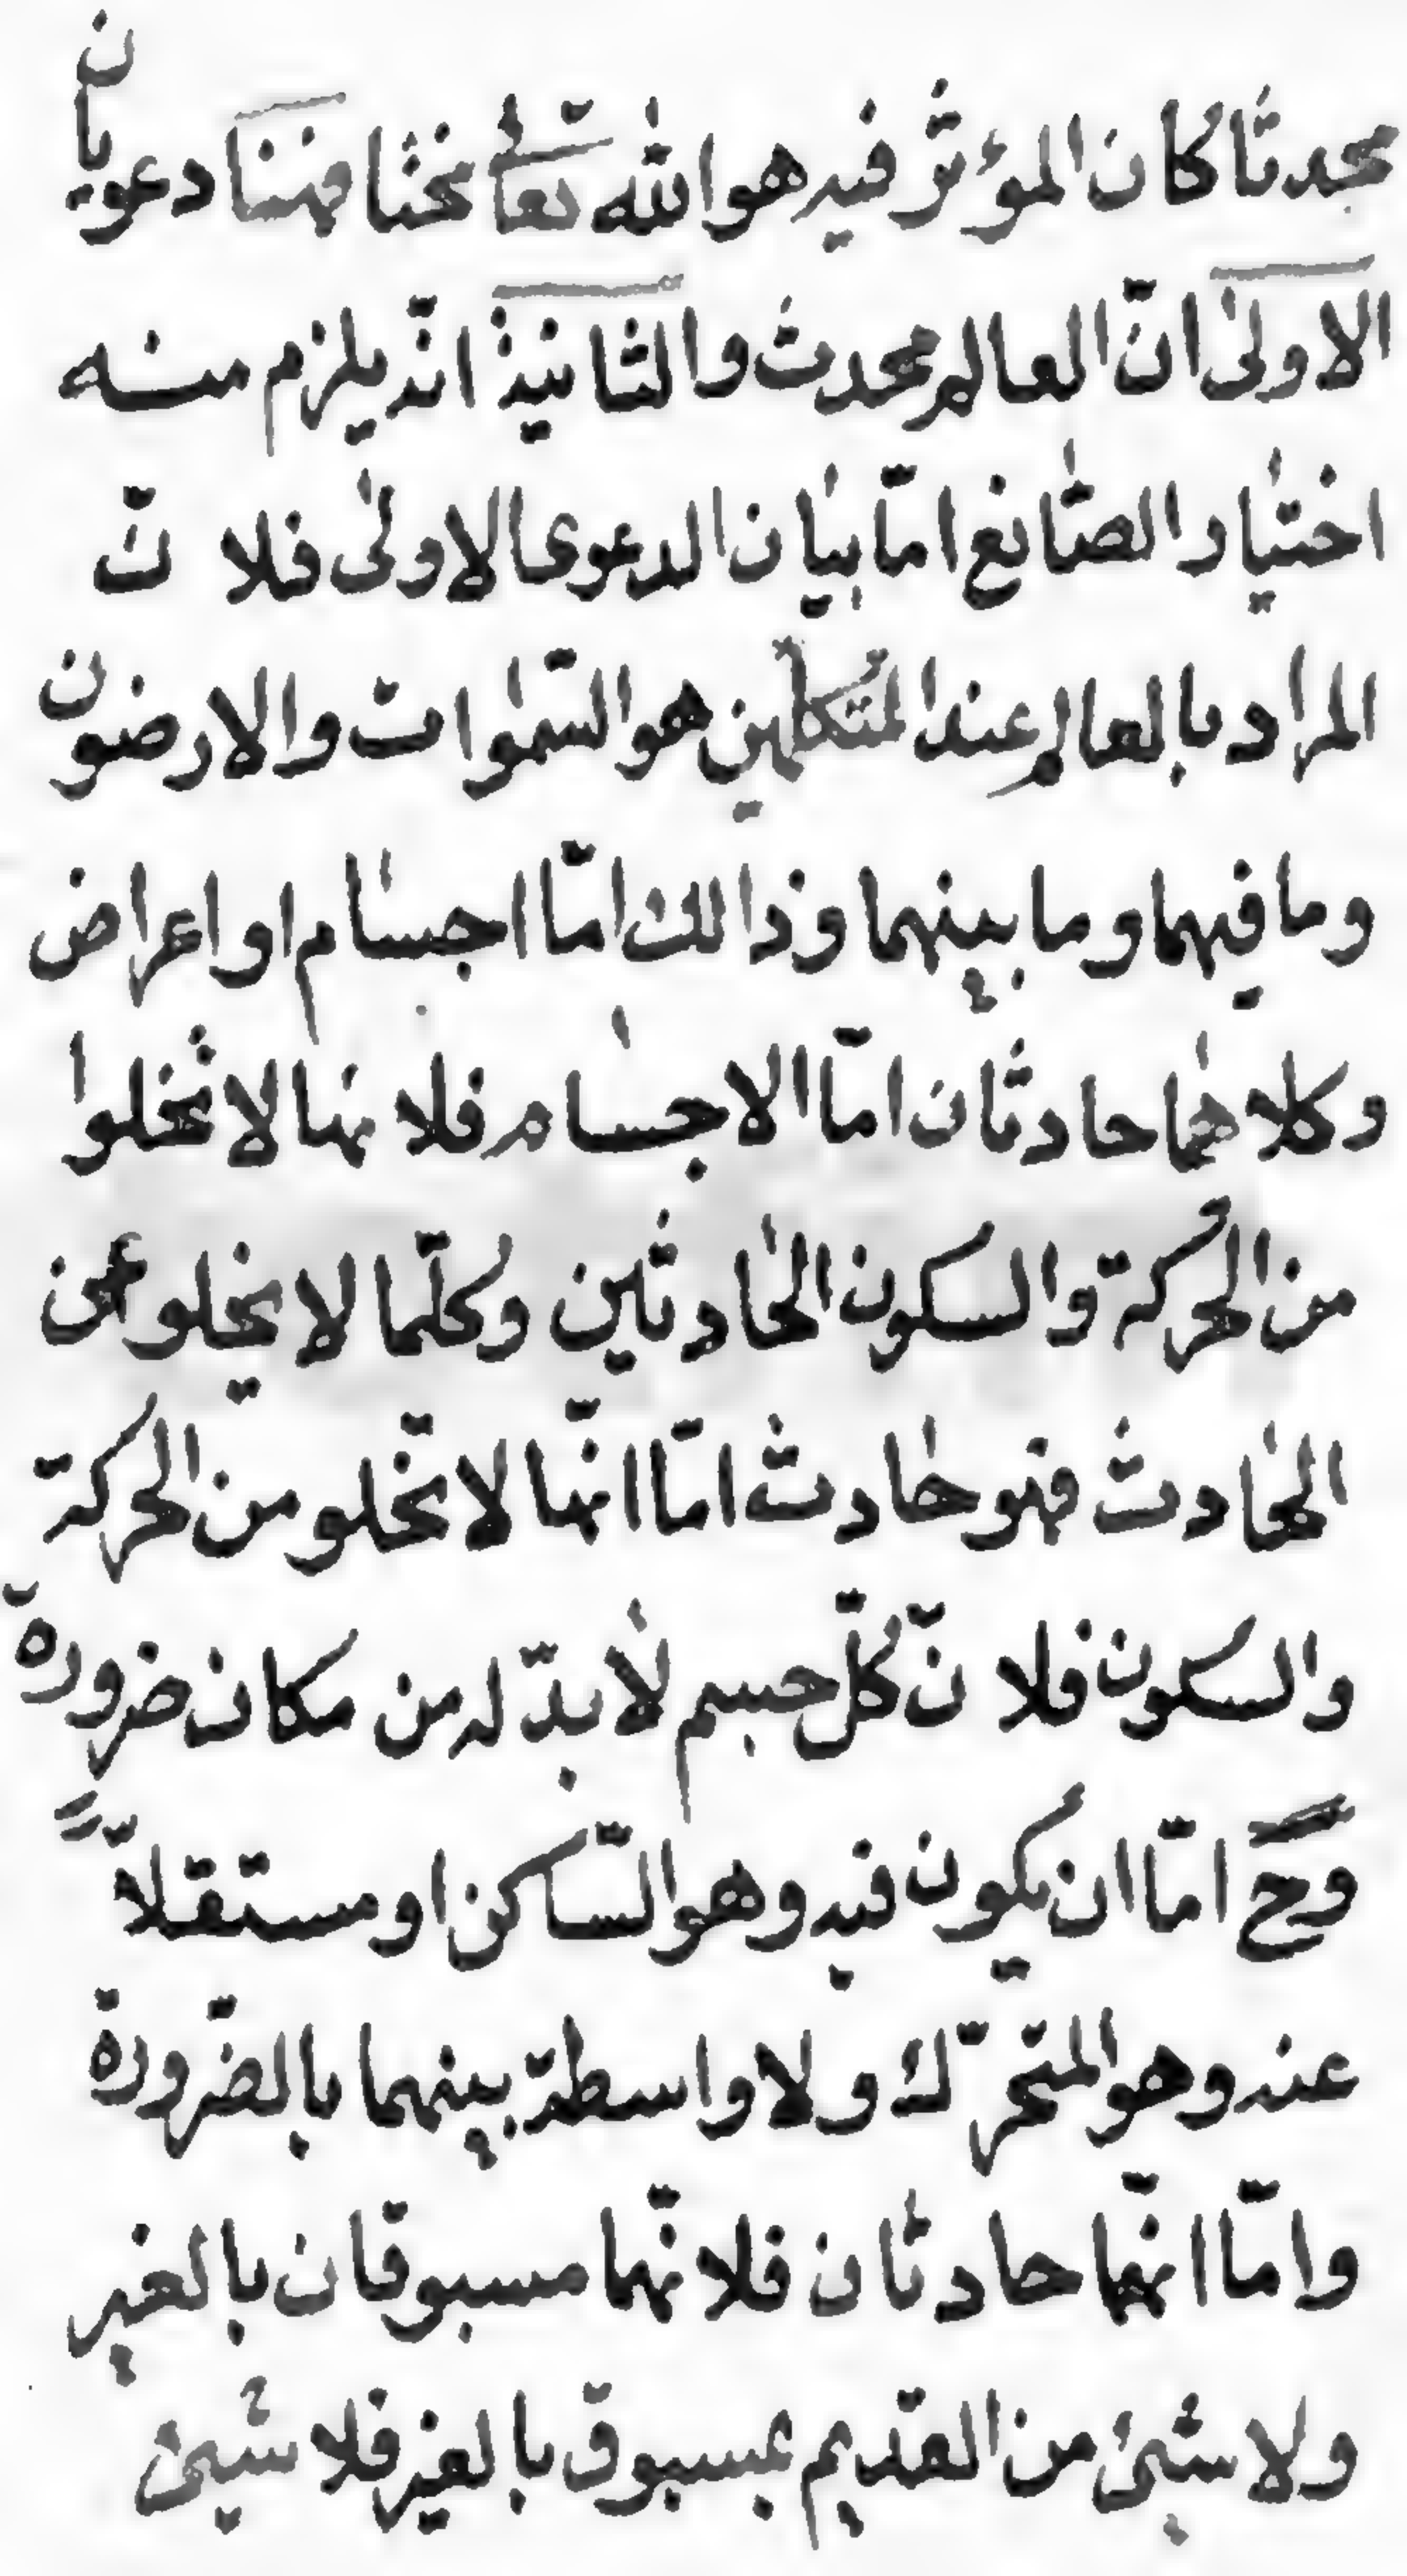 محدثا كان المؤثر فيه هو الله تعالى مختارا فهنا دعويان
الاولىٰ انّ العالم محدث والثانية انّه يلزم منه
اختيار الصّانع امّا بيان الدعوى الاولىٰ فلانّ
المراد بالعالم عند المتكلمين هو السّمٰوات والارضون
وما فيهما وما بينهما وذالك امّا اجسام او اعراض
وكلاهما حادثان امّا الاجسام فلانها لا تخلوا
من الحركة والسكون الحادثين وكلّما لا يخلو عن
الحادث فهو حادث امّا انّها لا تخلو من الحركة
والسكون فلانّ كلّ جسم لابدّ له من مكان ضرورة
وح امّا ان يكون فيه وهو السّاكن او مستقلاًّ
عنه وهو المتحرّك ولا واسطة بينهما بالضّرورة
وامّا انّهما حادثان فلانّهما مسبوقان بالغير
ولا شيئ من القديم بمسبوق بالغير فلا شيئ